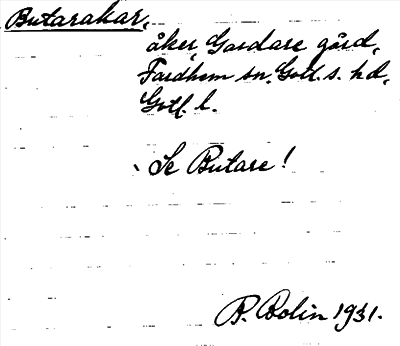 Butarakar,
åker, Gardare gård,
Fardhem sn. Gotl. s. hd,
Gotl. l.
Se Butare!
B. Bolin 1931.